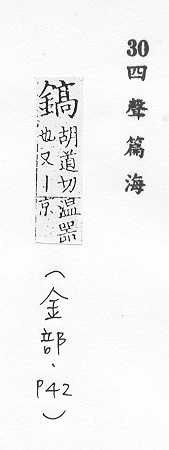 30 四聲篇海
鎬 胡道切溫器
也又丨京
（金部、P42）